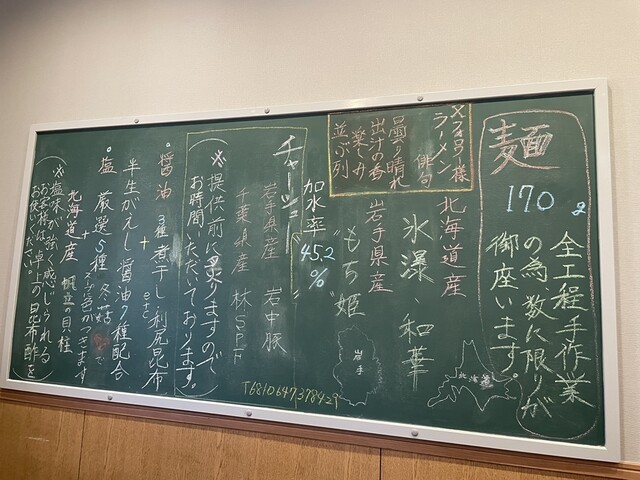 麺
170g
全工程手作業
の為、数に限りが
御座います。
Xフォロワー様
ラーメン 俳句
曇り晴れ
出汁の香
楽しみ
並ぶ列
北海道産
氷瀑、和華
北海道
岩手県産
"もち姫"
岩手
加水率
45.2
%
チャーシュー
岩手県産 岩中豚
千葉県産 林SPF
(※提供前に炙りますので
お時間いただいております。)
T6810647378429
・醤油 3種 煮干し・利尻昆布
etc
+
半生がえし 醤油7種配合
・塩 厳選5種 冬菇
で
色がつきます
+
北海道産 帆立の貝柱
(※塩味が強く感じられる
お客様は卓上の昆布酢を
お使いください。)